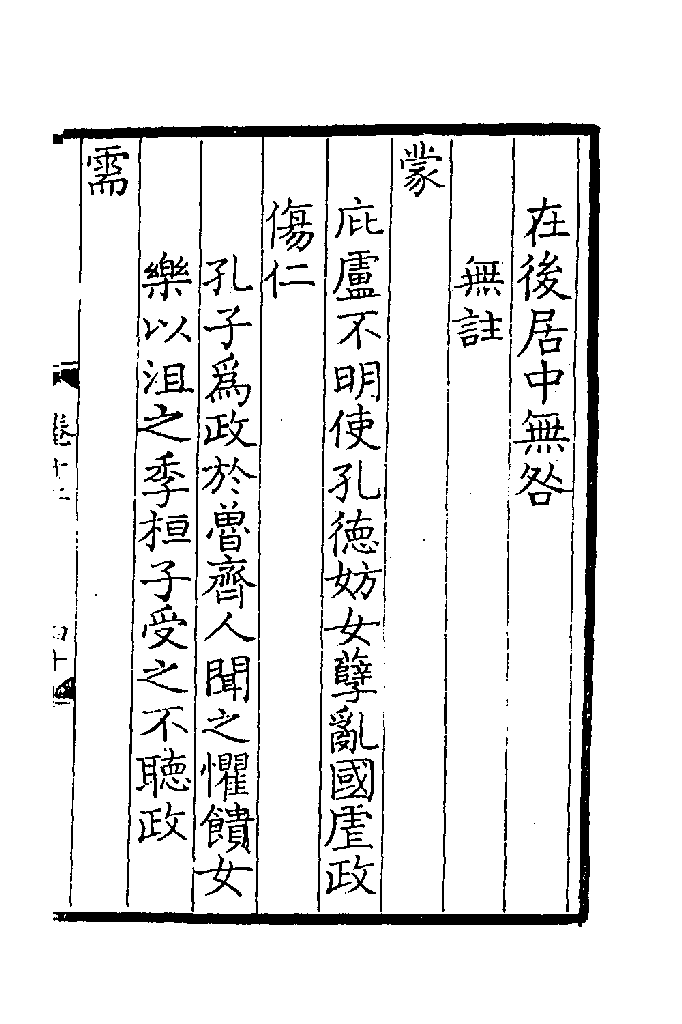 在後居中無咎
無註
蒙
庇廬不明使孔德妨女孽亂國虐政
傷仁
孔子爲政於魯齊人聞之懼饋女
樂以沮之季桓子受之不聽政
需